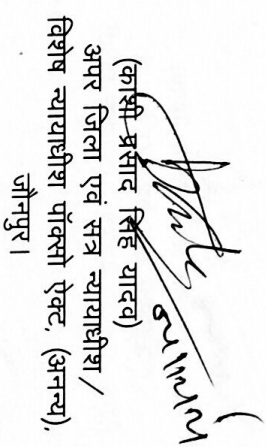 (काशी प्रसाद सिंह यादव)
अपर जिला एवं सत्र न्यायाधीश/
विशेष न्यायाधीश पॉक्सो ऐक्ट, (अनन्य).
जौनपुर।